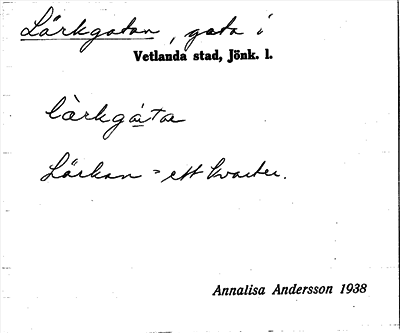 Lärkgatan, gata i
Vetlanda stad, Jönk. l.
lä̀rkgáta
Lärkan = ett kvarter.
Annalisa Andersson 1938